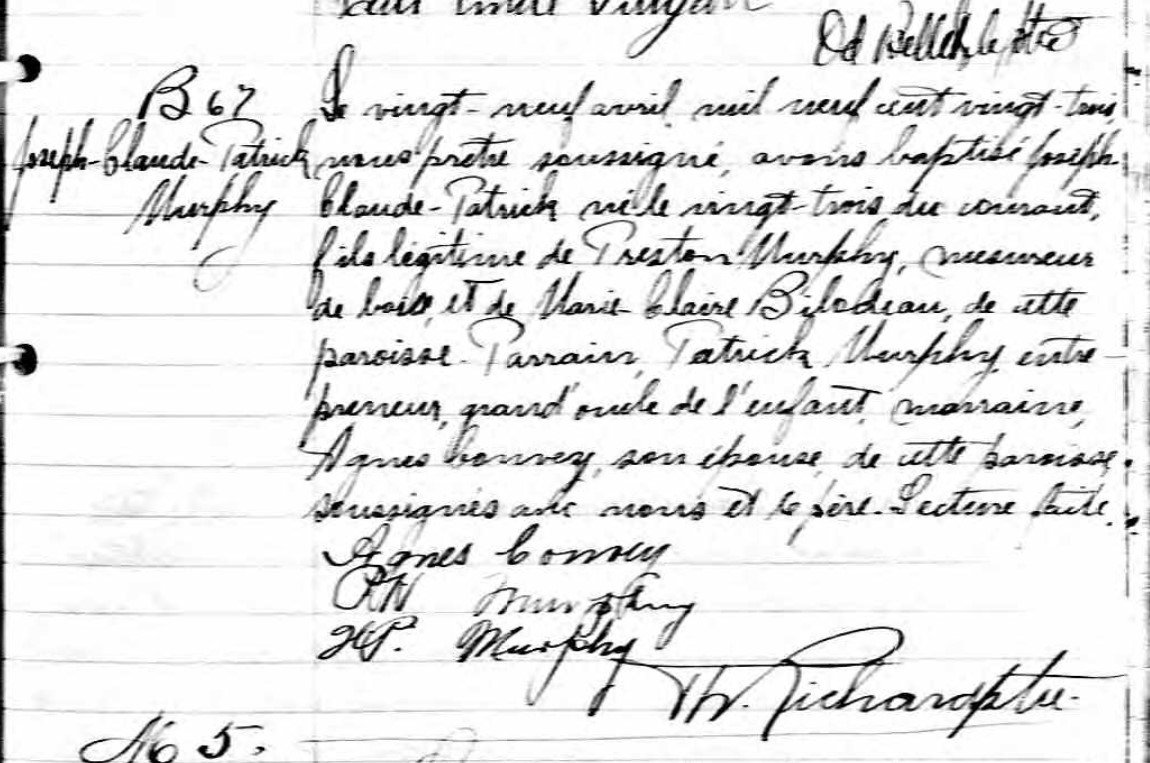 B 67
Joseph-Claude-Patrick
Murphy
Le vingt-neuf avril mil neuf cent vingt-trois,
nous prêtre soussigné, avons baptisé Joseph-
Claude-Patrick né le vingt-trois du courant,
fils légitime de Preston Murphy, mesureur
de bois, et de Marie-Claire Bilodeau, de cette
paroisse. Parrain, Patrick Murphy, entre-
preneur, grand'oncle de l'enfant, marraine,
Agnes Convey, son épouse, de cette paroisse,
soussignés avec nous et le père. Lecture faite.
Agnes Convey
PH Murphy
H.P. Murphy
Th. Richard ptre.
M 5.